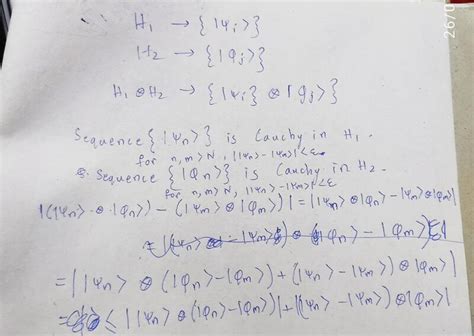 H₁ → {|ψᵢ>}
H₂ → {|φⱼ>}
H₁ ⊗ H₂ → {|ψᵢ} ⊗ |φⱼ>}
Sequence {|ψₙ>} is Cauchy in H₁.
for n,m > N, ||ψₙ> - |ψₘ>| < ε.
Sequence {|φₙ>} is Cauchy in H₂.
for n,m > N, ||ψₙ> - |ψₘ>| < ε
|(|ψₙ> ⊗ |φₙ>) - (|ψₘ> ⊗ |φₘ>)| = ||ψₙ> ⊗ |φₙ> - |ψₘ> ⊗ |φₘ>|
= ||ψₙ> ⊗ (|φₙ> - |φₘ>) + (|ψₙ> - |ψₘ>) ⊗ |φₘ>|
≤ ||ψₙ> ⊗ (|φₙ> - |φₘ>)| + |(|ψₙ> - |ψₘ>) ⊗ |φₘ>|